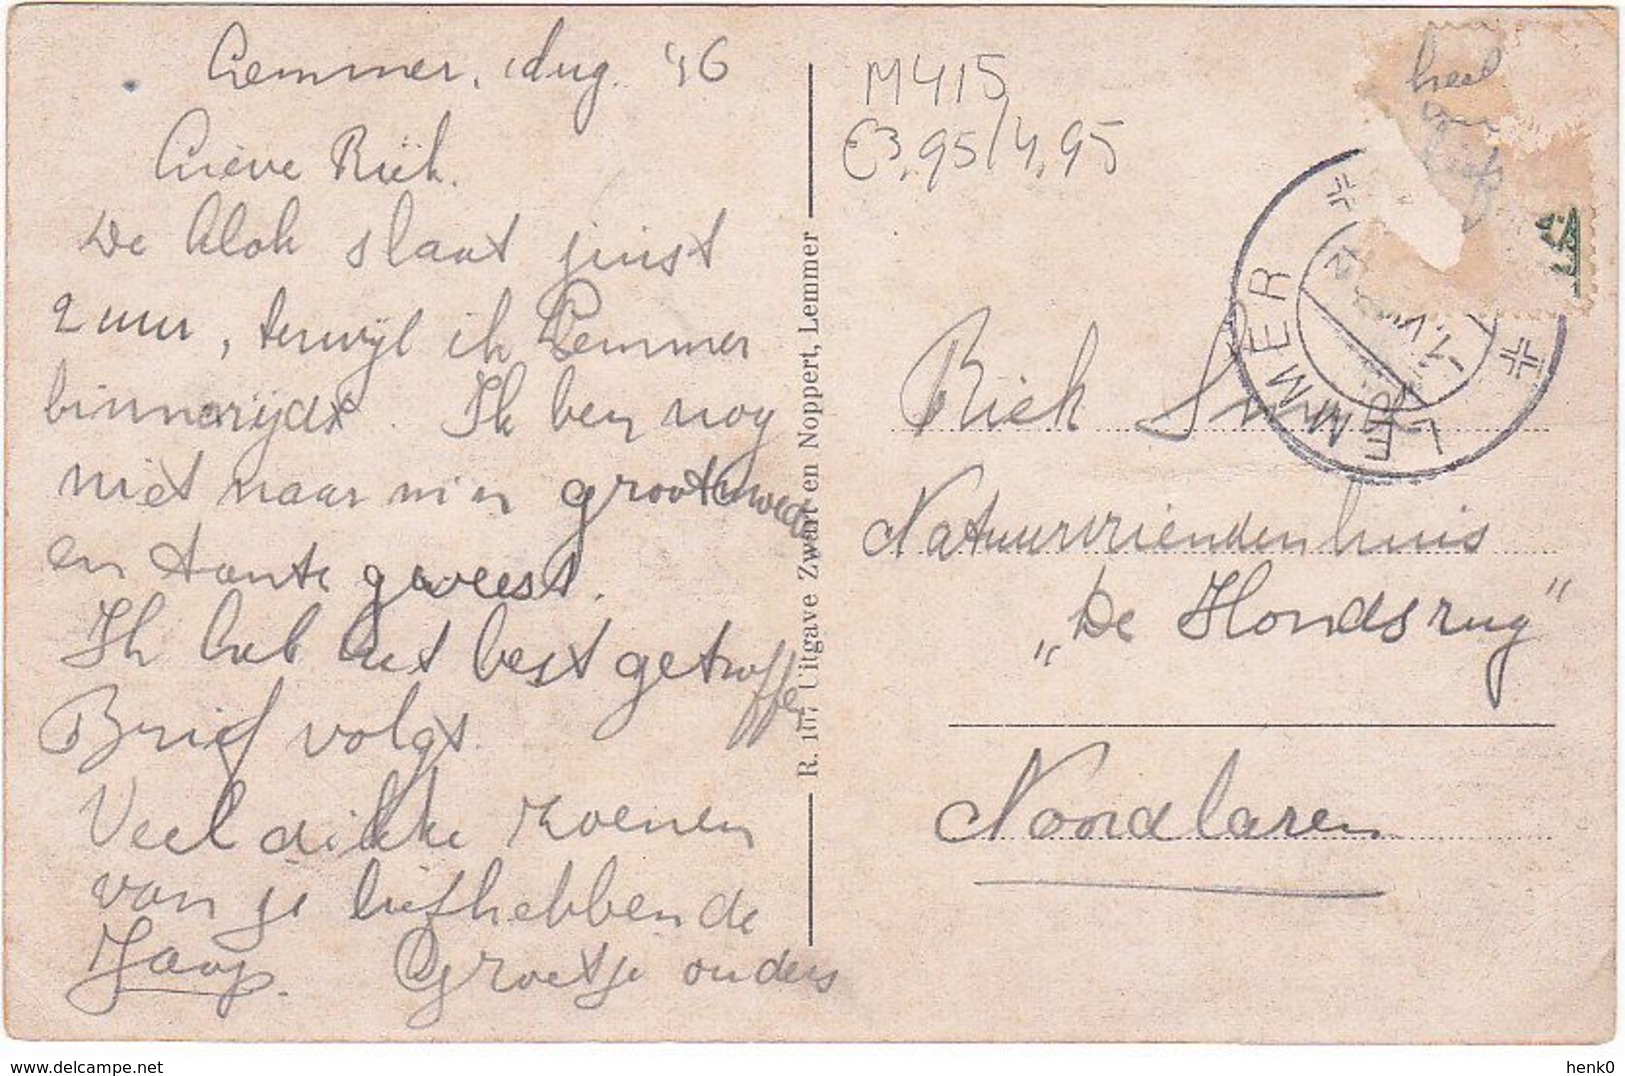 Lemmer, Aug. '46
Lieve Riek.
De klok slaat juist
2 uur, terwijl ik Lemmer
binnenrijdt. Ik ben nog
niet naar m'n grootmoeder
en tante geweest.
Ik heb het best getroffen
Brief volgt.
Veel dikke zoenen
van je liefhebbende
Jaap. Groetje ouders
R. 107 Uitgave Zwart en Noppert, Lemmer
M415
€3,95/4,95
heel
LEMMER
Riek
Natuurvriendenhuis
„De Hondsrug”
Noordlaren
delcampe.net
henk0